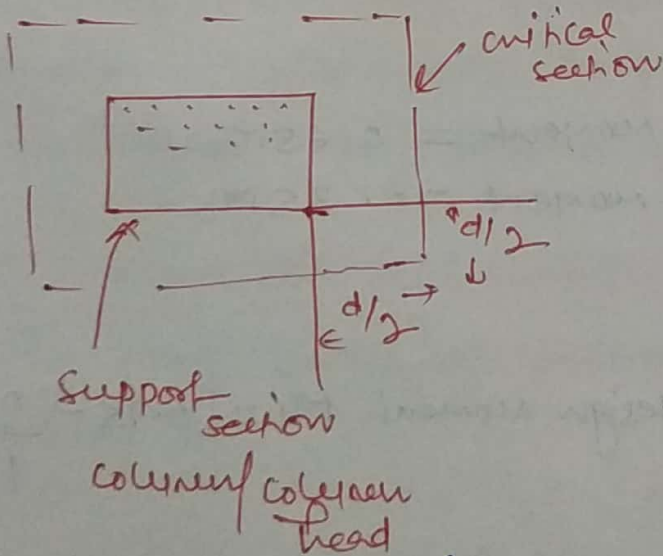 critical
section
d/2
d/2
Support
section
column/column
head